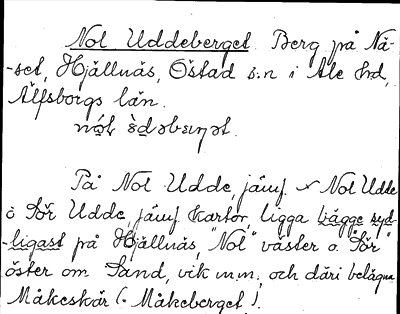 Nol Uddeberget. Berg på Nä-
-set, Hjällnäs, Östad s:n i Ale hd,
Älfsborgs län.
På Nol Udde, jämf Nol Udde
o Sör Udde, jämf kartor, ligga bägge syd-
-ligast på Hjällnäs, "Nol" väster o. "Sör"
öster om Sand, vik m.m., och däri belägna
Måkeskär (: Måkeberget).